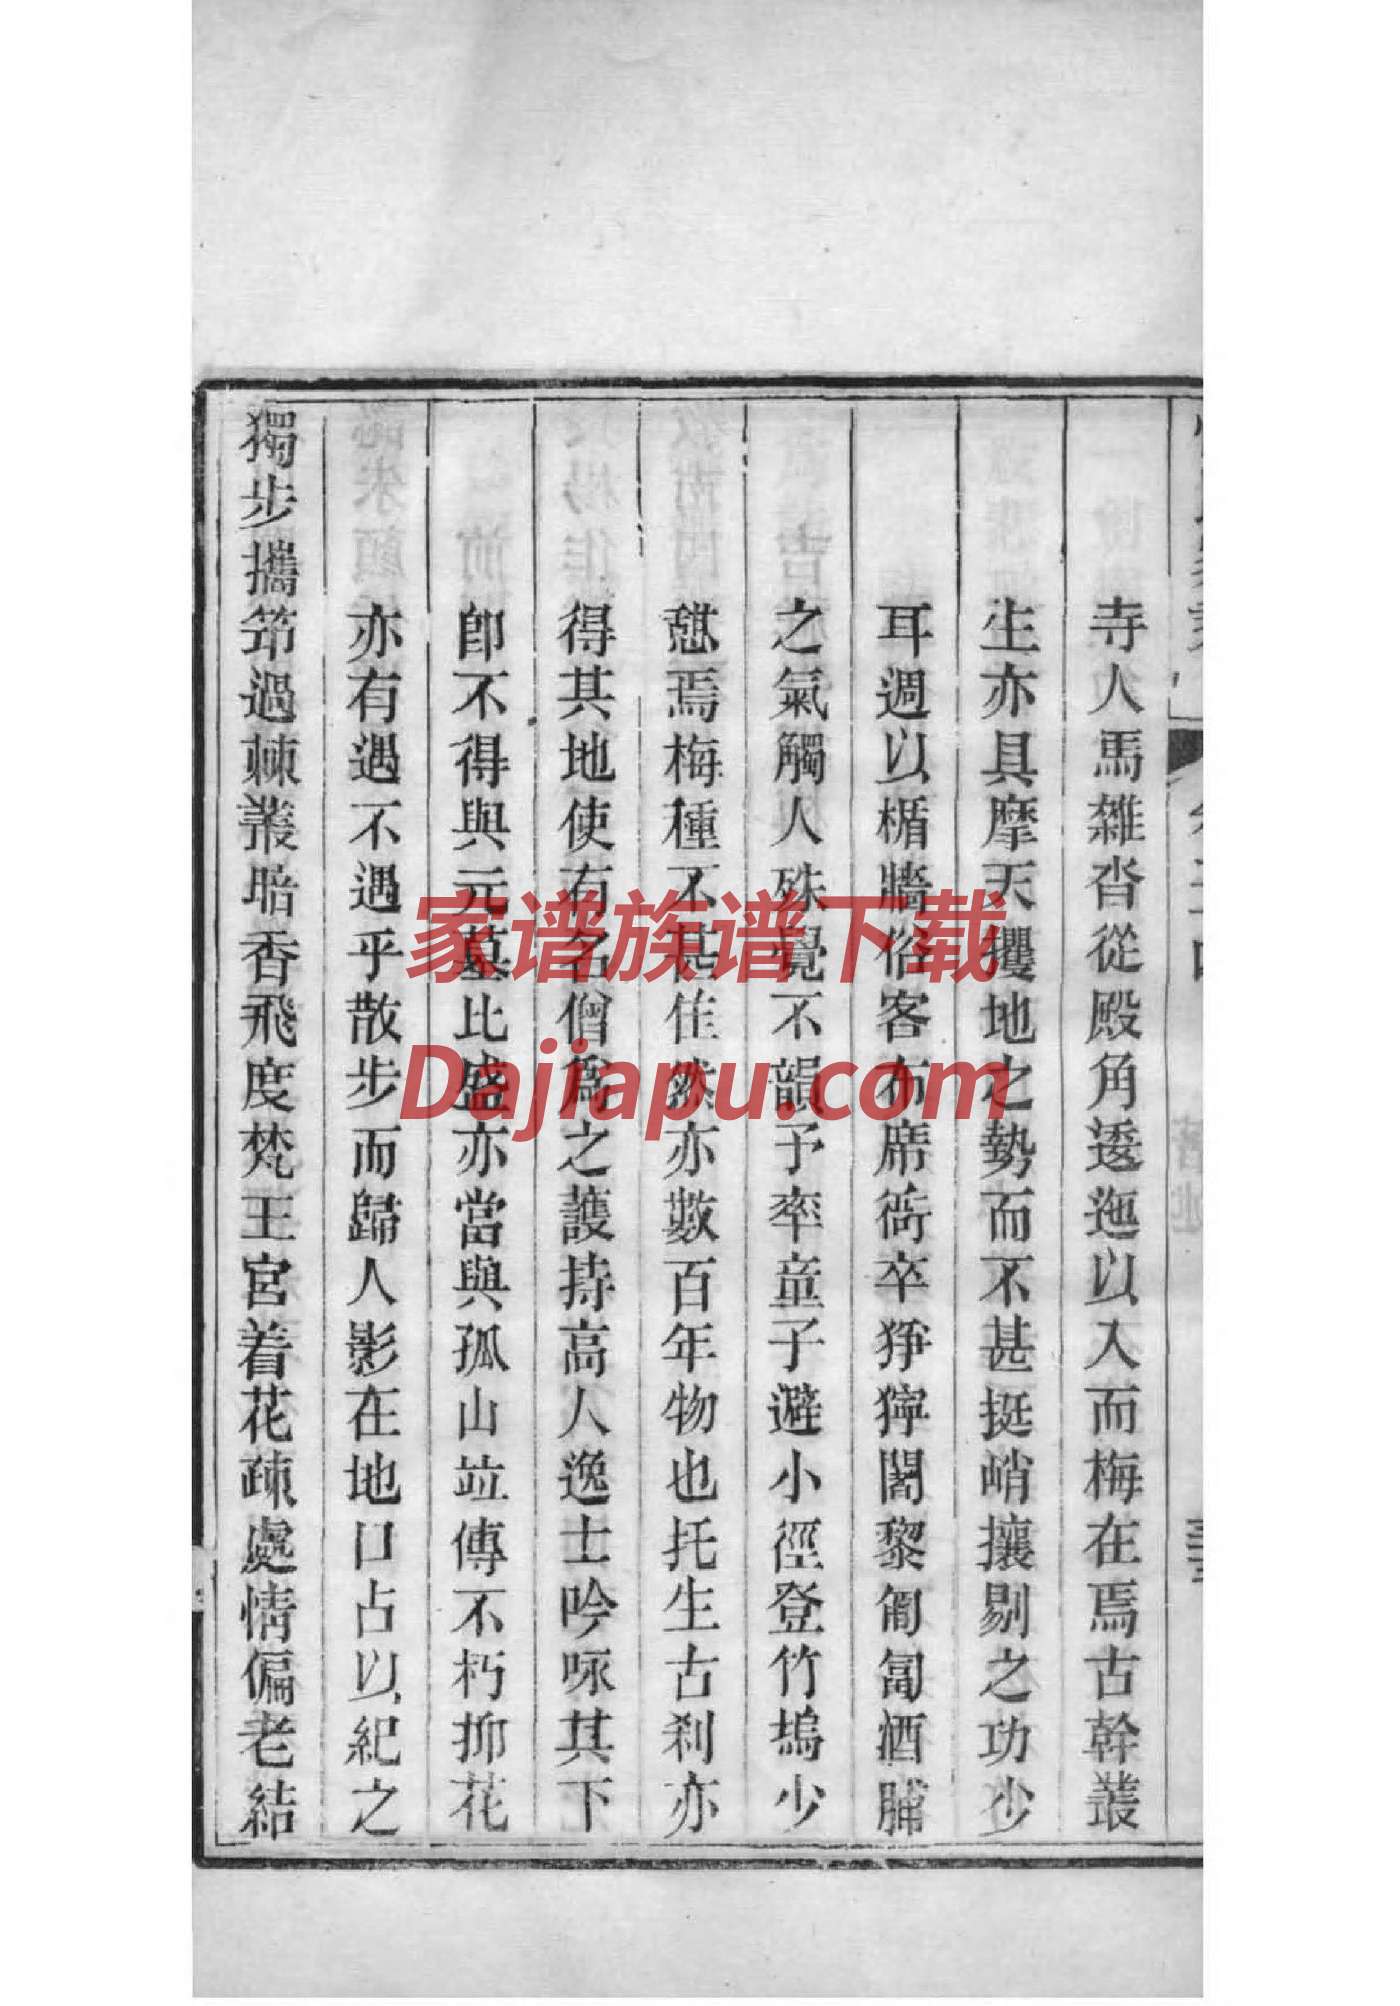 寺人馬雜沓從殿角逶迤以入而梅在焉古幹叢
生亦具摩天攫地之勢而不甚挺峭攘剔之功少
耳週以楯牆俗客布席衙卒猙獰闍黎匍匐酒脯
之氣觸人殊覺不韻予率童子避小徑登竹塢少
憇焉梅種不甚佳然亦數百年物也托生古刹亦
得其地使有名僧爲之護持高人逸士吟咏其下
卽不得與元墓比盛亦當與孤山竝傳不朽抑花
亦有遇不遇乎散步而歸人影在地口占以紀之
獨步攜筇過棘叢暗香飛度梵王宮着花疎處情偏老結
家谱族谱下载
Dajiapu.com